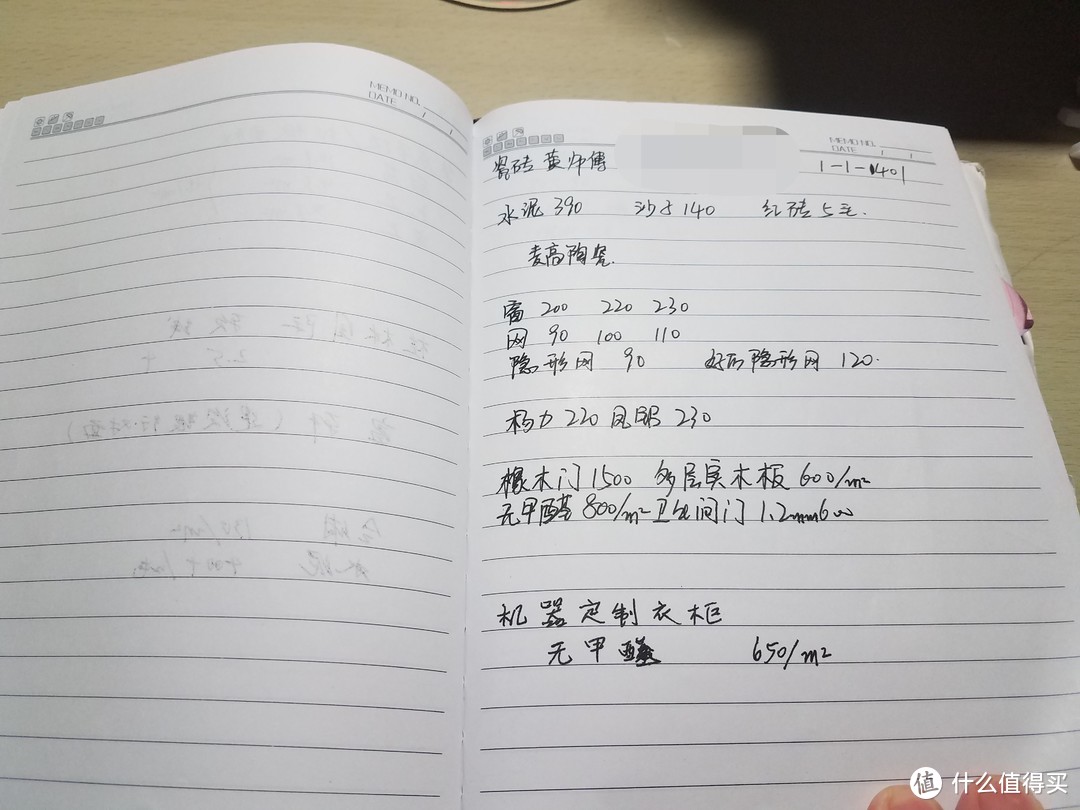 MEMO NO.
DATE / /
MEMO NO.
DATE / /
瓷砖 黄师傅 1-1-1401
水泥 390 沙子 140 红砖 5毛.
麦高陶瓷.
窗 200 220 230
网 90 100 110
隐形网 90 好的隐形网 120.
220 凤铝 230
橡木门 1500 多层实木板 600/m²
无甲醛 800/m² 卫生间门 1.2mm 600
机器定制衣柜
无甲醛 650/m²
值 什么值得买